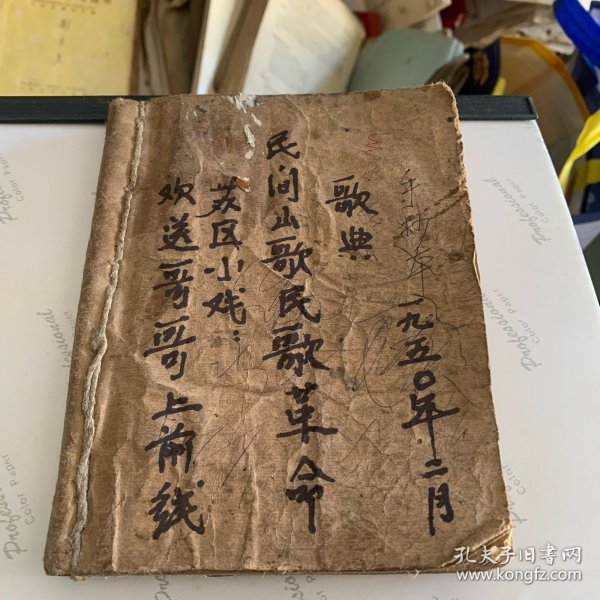 手抄
一九五〇年二月
歌典
民间山歌民歌革命
苏区小戏:
欢送哥哥上前线
Professional
Color Paper
Professional
Color Paper
Professional
Color Paper
孔夫子旧书网
www.kongfz.com